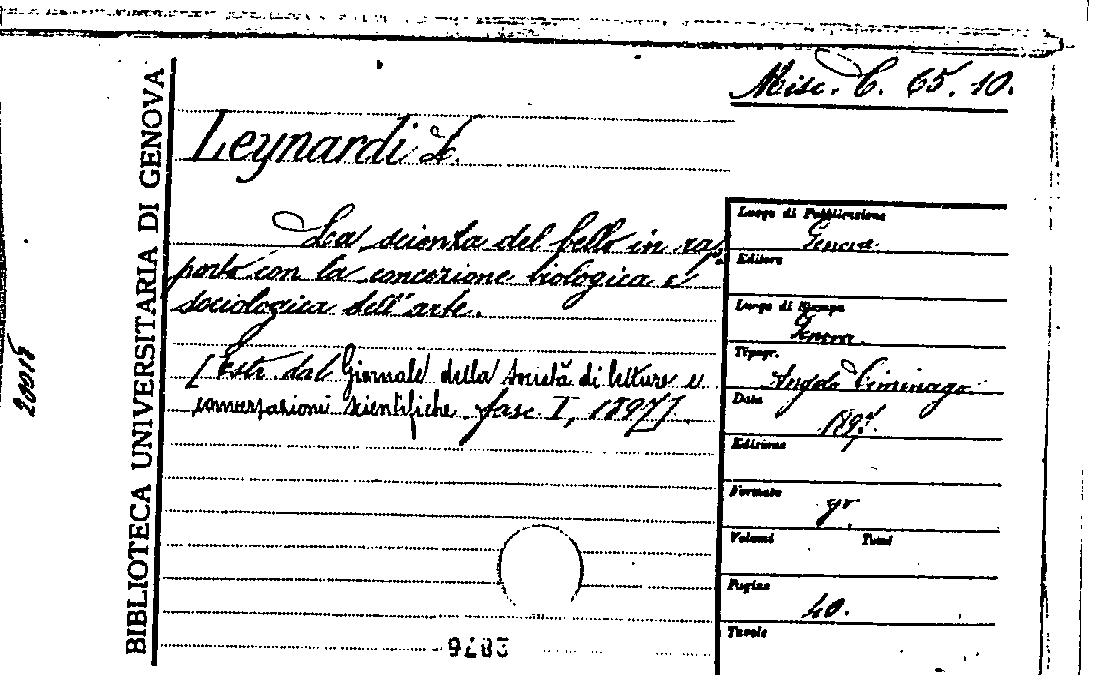 Misc. C. 65. 10.
BIBLIOTECA UNIVERSITARIA DI GENOVA
Leynardi L.
La scienza del bello in rap
porto con la concezione biologica e
sociologica dell'arte.
[Estr. dal Giornale della Società di letture e
conversazioni scientifiche fasc. I, 1897].
Luogo di Pubblicazione
Genova
Editore
Luogo di Stampa
Genova
Tipogr.
Angelo Ciminago
Data
1897.
Edizione
Formato
Volumi Tomi
Pagine
40.
Tavole